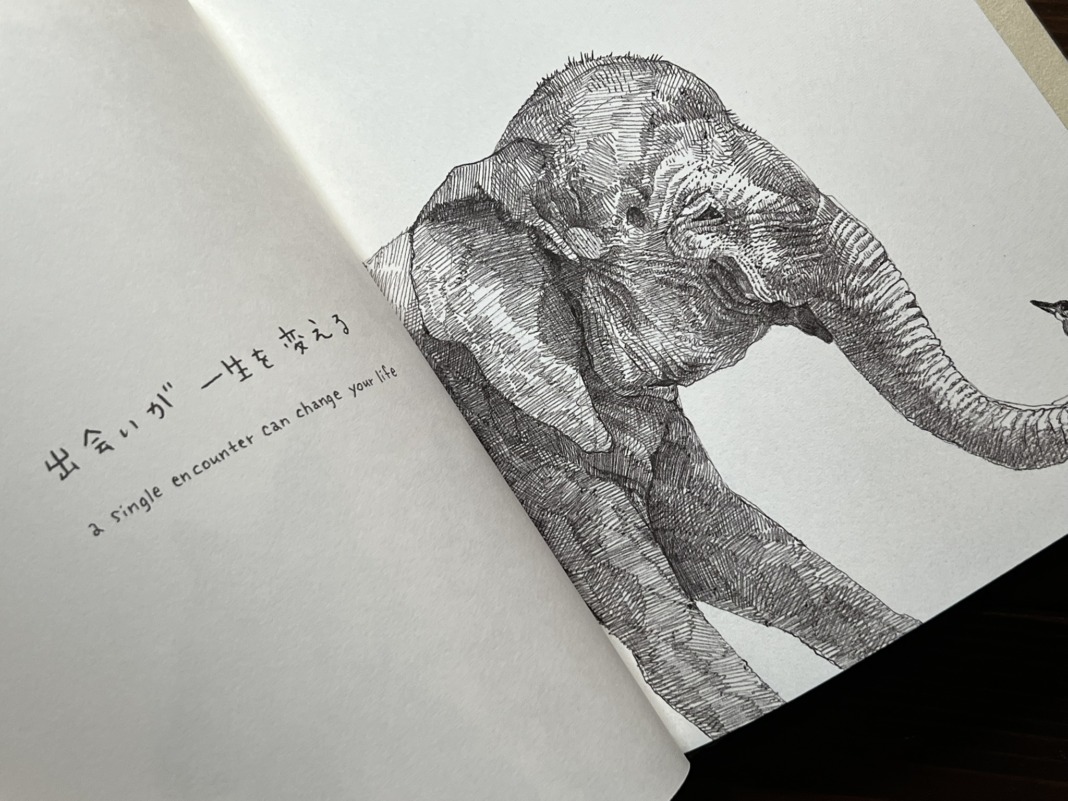 出会いが 一生を変える
a single encounter can change your life